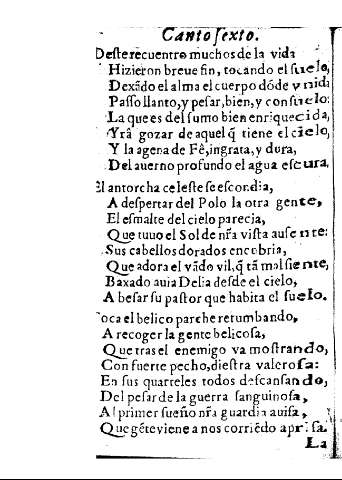 Canto ſexto.
Deſte recuentro muchos de la vida
Hizieron breue fin, tocando el ſuelo,
Dexãdo el alma el cuerpo dóde vnida
Paſſo llanto, y peſar, bien, y conſuelo:
La que es del ſumo bien enriquecida,
Yrá gozar de aquel q̃ tiene el cielo,
Y la agena de Fê, ingrata, y dura,
Del auerno profundo el agua eſcura.
El antorcha celeſte ſe eſcondia,
A deſpertar del Polo la otra gente,
El eſmalte del cielo parecia,
Que tuuo el Sol de nr̃a viſta auſente:
Sus cabellos dorados encobria,
Que adora el vãdo vil, q̃ tã mal ſiente,
Baxado auia Delia deſde el cielo,
A beſar ſu paſtor que habita el ſuelo.
Toca el belico parche retumbando,
A recoger la gente belicoſa,
Que tras el enemigo va moſtrando,
Con fuerte pecho, dieſtra valeroſa:
En sus quarteles todos deſcanſando,
Del peſar de la guerra ſanguinoſa,
Al primer ſueño nr̃a guardia auiſa,
Que gẽte viene a nos corriẽdo apriſa.
La